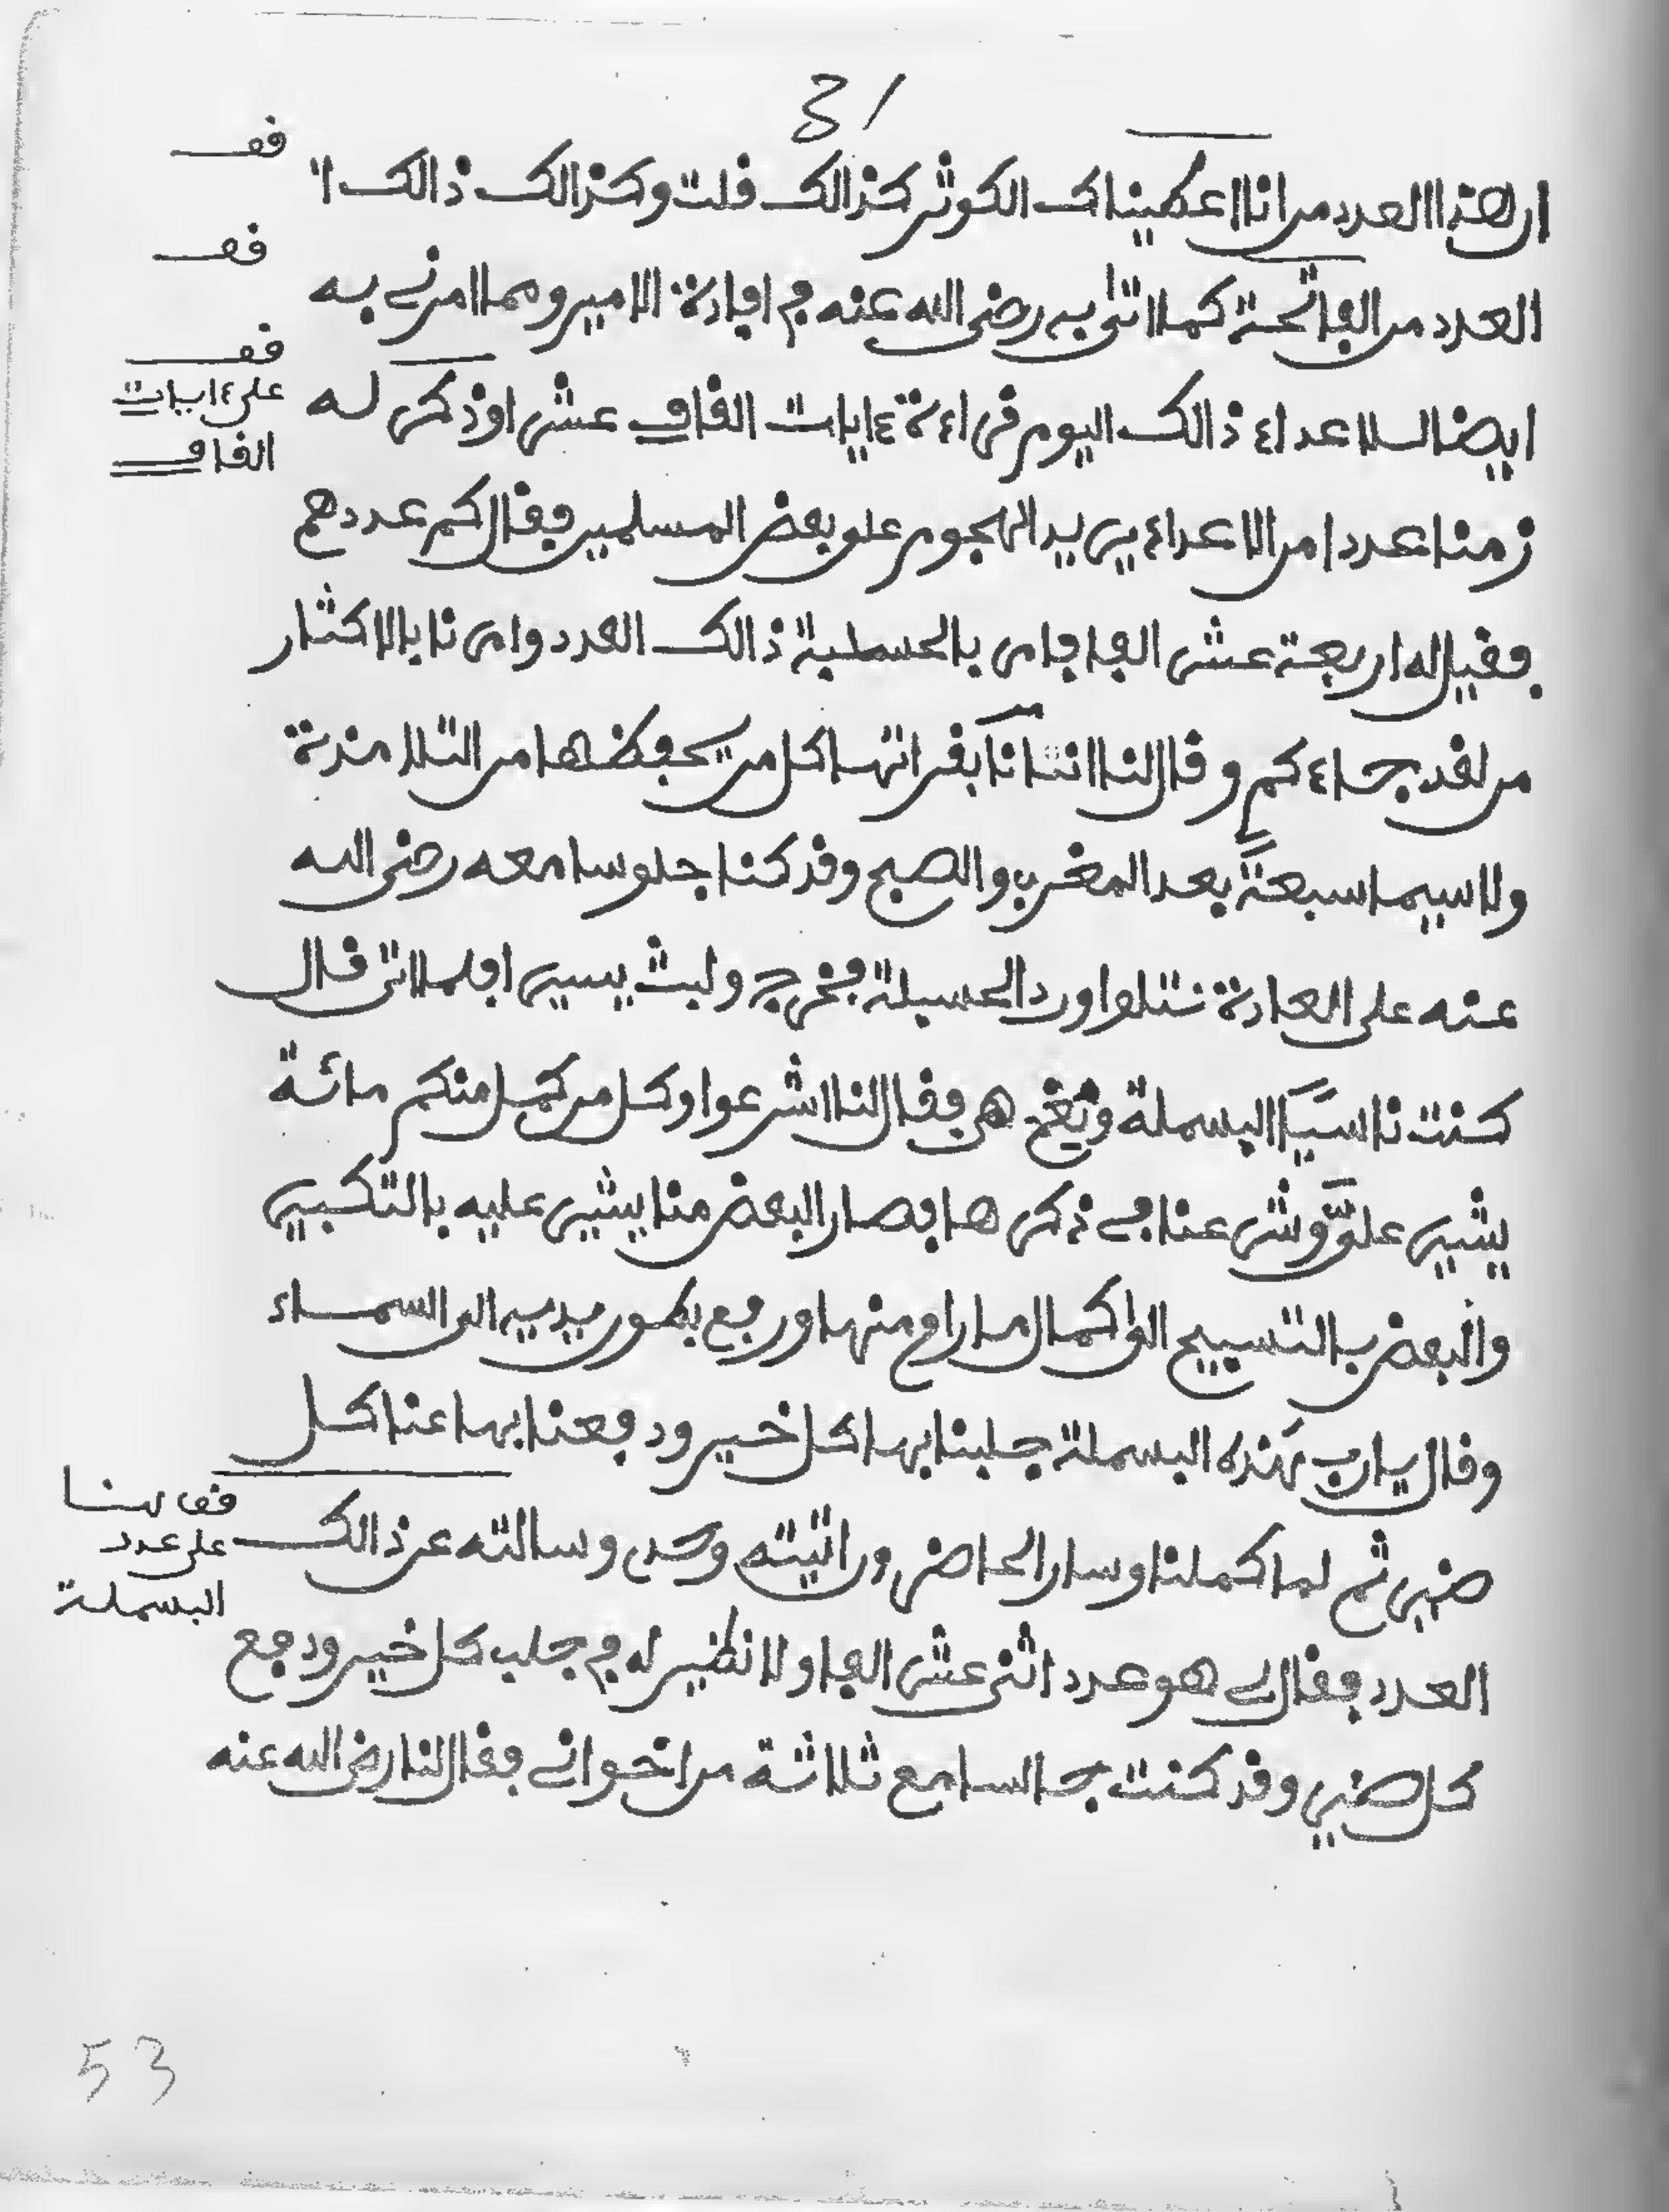 ان هذا العدد من انا اعطيناك الكوثر كذالك قلت وكذالك ذالك
العدد من الفاتحة كما اتى به رضي الله عنه في افادة الامير ومما امرني به
ايضا للاعداء ذالك اليوم قراءة ٤ ايات القاف عشرا وذكر له
زمنا عددا من الاعداء يريد الهجوم على بعض المسلمين فقال كم عددهم
فقيل له اربعة عشر الفا فامر بالحسبلة ذالك العدد وامرنا بالاكثار
من لقد جاءكم وقال لنا بقراتها كل من يحفظها من التلامذة
ولا سيما سبعة بعد المغرب والصبح وقد كنا جلوسا معه رضي الله
عنه على العادة نتلوا ورد الحسبلة فخرج ولبث يسيرا فلما اتى قال
كنت ناسيا البسملة هي فقال لنا اشرعوا وكل من كمل منكم مائة
يشير علي وشرعنا في ذكرها فصار البعض منا يشير عليه بالتكبير
والبعض بالتسبيح الى اكمال ما رام منها ورفع يديه الى السماء
وقال يا رب بهذه البسملة جلبنا بها كل خير ودفعنا بها عنا كل
ضير ثم لما كملنا وسار الحاضرون اتيته وحدي وسالته عن ذالك
العدد فقال لي هو عدد اثني عشر الفا ولا نظير له في جلب كل خير ودفع
كل ضير وقد كنت جالسا مع ثلاثة من اخواني فقال لنا رضي الله عنه
قف
قف
قف
على ٤ ايات
القاف
قف هنا
على عدد
البسملة
53